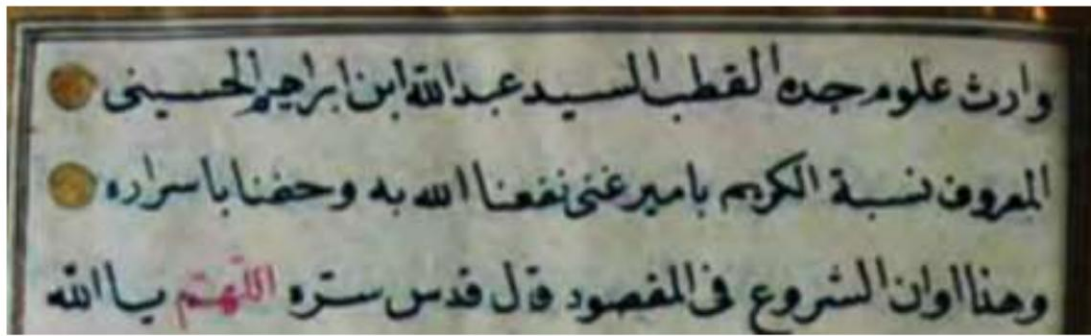 وارث علوم جده القطب السيد عبد الله ابن ابراهيم الحسينى
المعروف نسبة الكريم بامير غنى نفعنا الله به وحفنا باسراره
وهنا اوان الشروع فى المقصود قال قدس سره اللهم يا الله